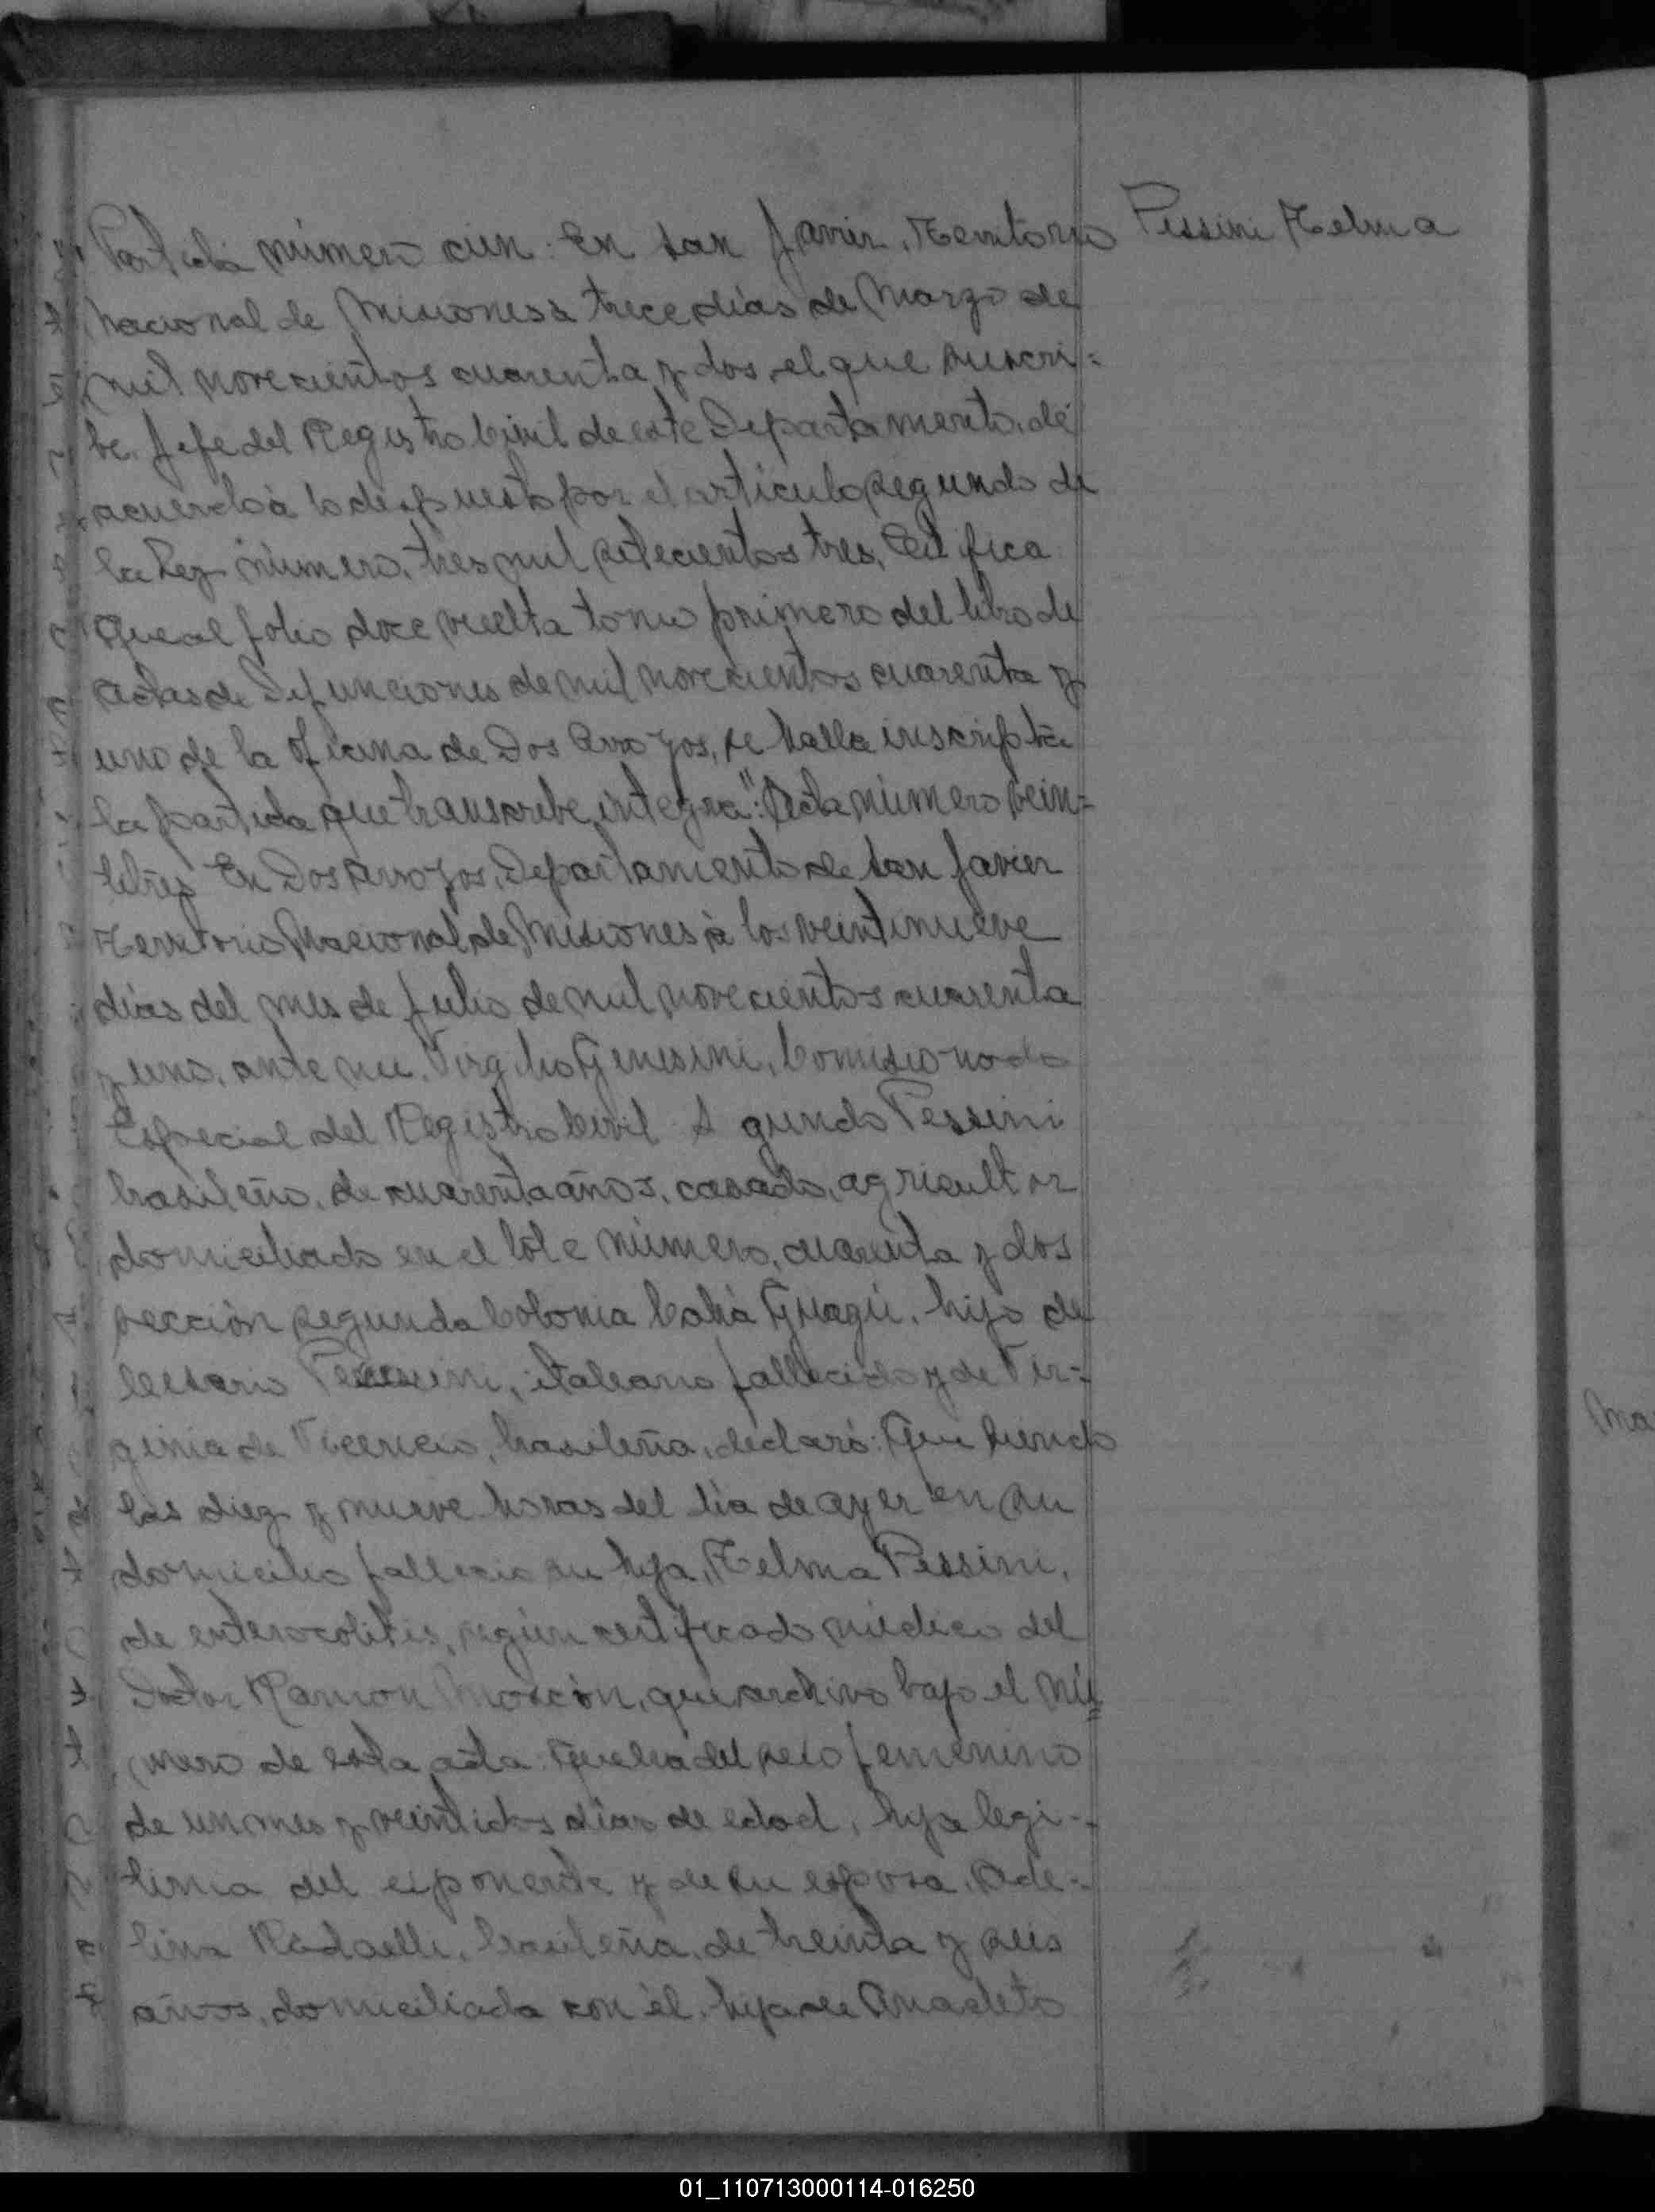 Partida número cien: En San Javier, Territorio
Pessini Telma
Nacional de Misiones a trece días de Marzo de
mil novecientos cuarenta y dos, el que suscri=
be, Jefe del Registro Civil de este Departamento, de
acuerdo a lo dispuesto por el articulo segundo de
la Ley número, tres mil setecientos tres, Certifica
Que al folio doce vuelta tomo primero del libro de
actas de Defunciones de mil novecientos cuarenta y
uno de la Oficina de Dos Arroyos, se halla inscripta
la partida que transcribe integra": Acta número vein=
titres En Dos Arroyos, Departamento de San Javier
Territorio Nacional de Misiones à los veintinueve
días del mes de Julio de mil novecientos cuarenta
y uno, ante mi, Virgilio Genesini, Comisionado
Especial del Registro Civil Segundo Pessini
brasileño, de cuarenta años, casado, agricultor
domiciliado en el lote número, cuarenta y dos
sección segunda Colonia Cahá Guazú, hijo de
Pessini, italiano fallecido y de Vir=
ginia de brasileña, declaró: Que siendo
las diez y nueve horas del dia de ayer en su
domicilio fallecio su hija, Telma Pessini,
de enterocolitis, según certificado médico del
Doctor Ramon que archivo bajo el nú=
mero de esta acta. Que era del sexo femenino
de un mes y veintidos días de edad, hija legi-
tima del exponente y de su esposa, Ade-
lina Radaelli, brasileña, de treinta y seis
años, domiciliada con él, hija de Anacleto
01_110713000114-016250